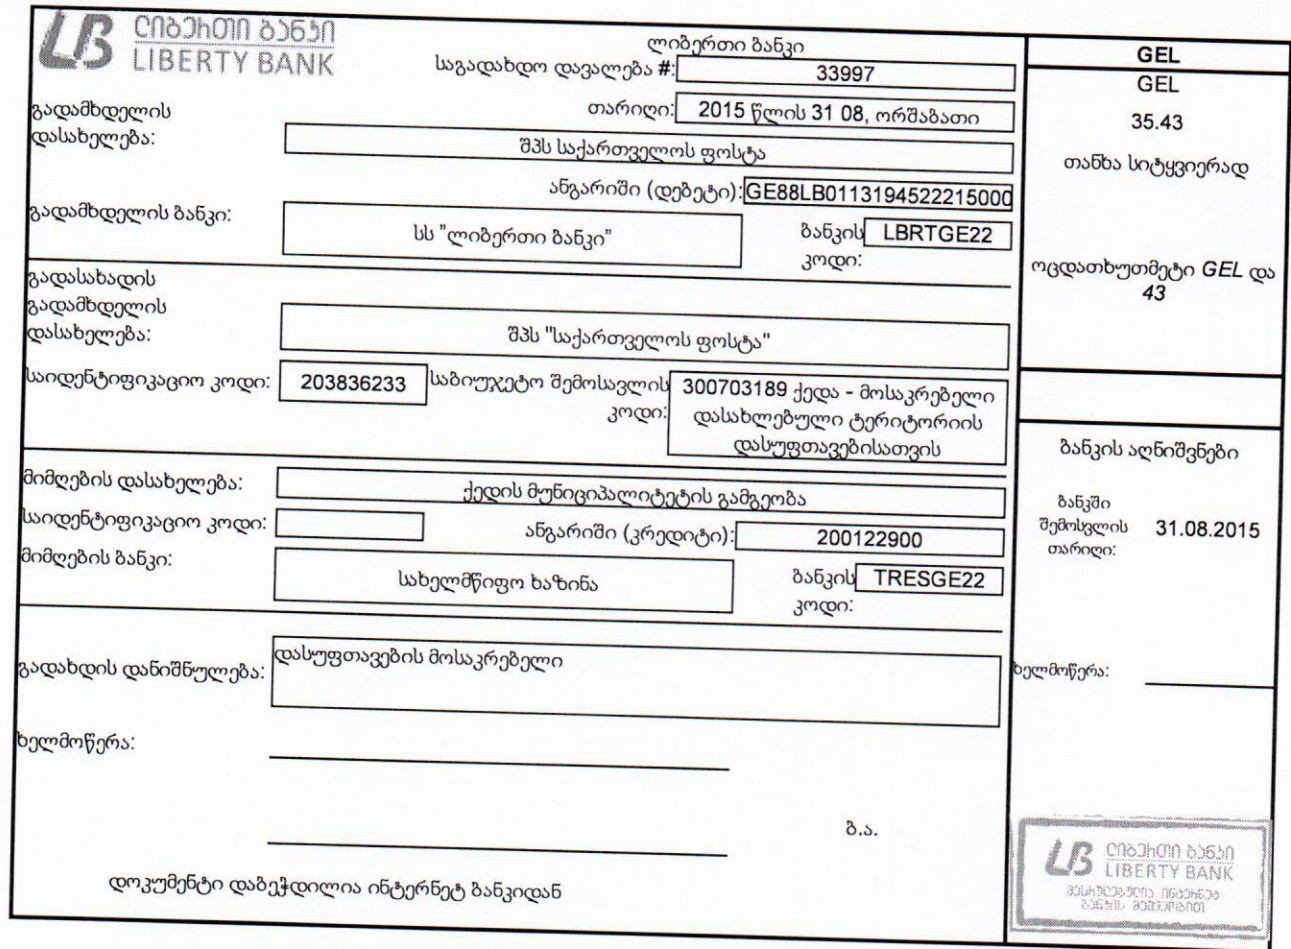 ლიბერთი ბანკი
LIBERTY BANK
ლიბერთი ბანკი
საგადახდო დავალება #: 33997
თარიღი: 2015 წლის 31 08, ორშაბათი
გადამხდელის
დასახელება:
შპს საქართველოს ფოსტა
ანგარიში (დებეტი): GE88LB0113194522215000
გადამხდელის ბანკი:
სს ”ლიბერთი ბანკი”
ბანკის LBRTGE22
კოდი:
გადასახადის
გადამხდელის
დასახელება:
შპს "საქართველოს ფოსტა"
საიდენტიფიკაციო კოდი: 203836233
საბიუჯეტო შემოსავლის
კოდი:
300703189 ქედა - მოსაკრებელი
დასახლებული ტერიტორიის
დასუფთავებისათვის
მიმღების დასახელება: ქედის მუნიციპალიტეტის გამგეობა
საიდენტიფიკაციო კოდი:
ანგარიში (კრედიტი): 200122900
მიმღების ბანკი:
სახელმწიფო ხაზინა
ბანკის TRESGE22
კოდი:
გადახდის დანიშნულება: დასუფთავების მოსაკრებელი
ხელმოწერა:
ბ.ა.
დოკუმენტი დაბეჭდილია ინტერნეტ ბანკიდან
GEL
GEL
35.43
თანხა სიტყვიერად
ოცდათხუთმეტი GEL და
43
ბანკის აღნიშვნები
ბანკში
შემოსვლის 31.08.2015
თარიღი:
ხელმოწერა:
ლიბერთი ბანკი
LIBERTY BANK
შესრულებულია ინტერნეტ
ბანკის მეშვეობით